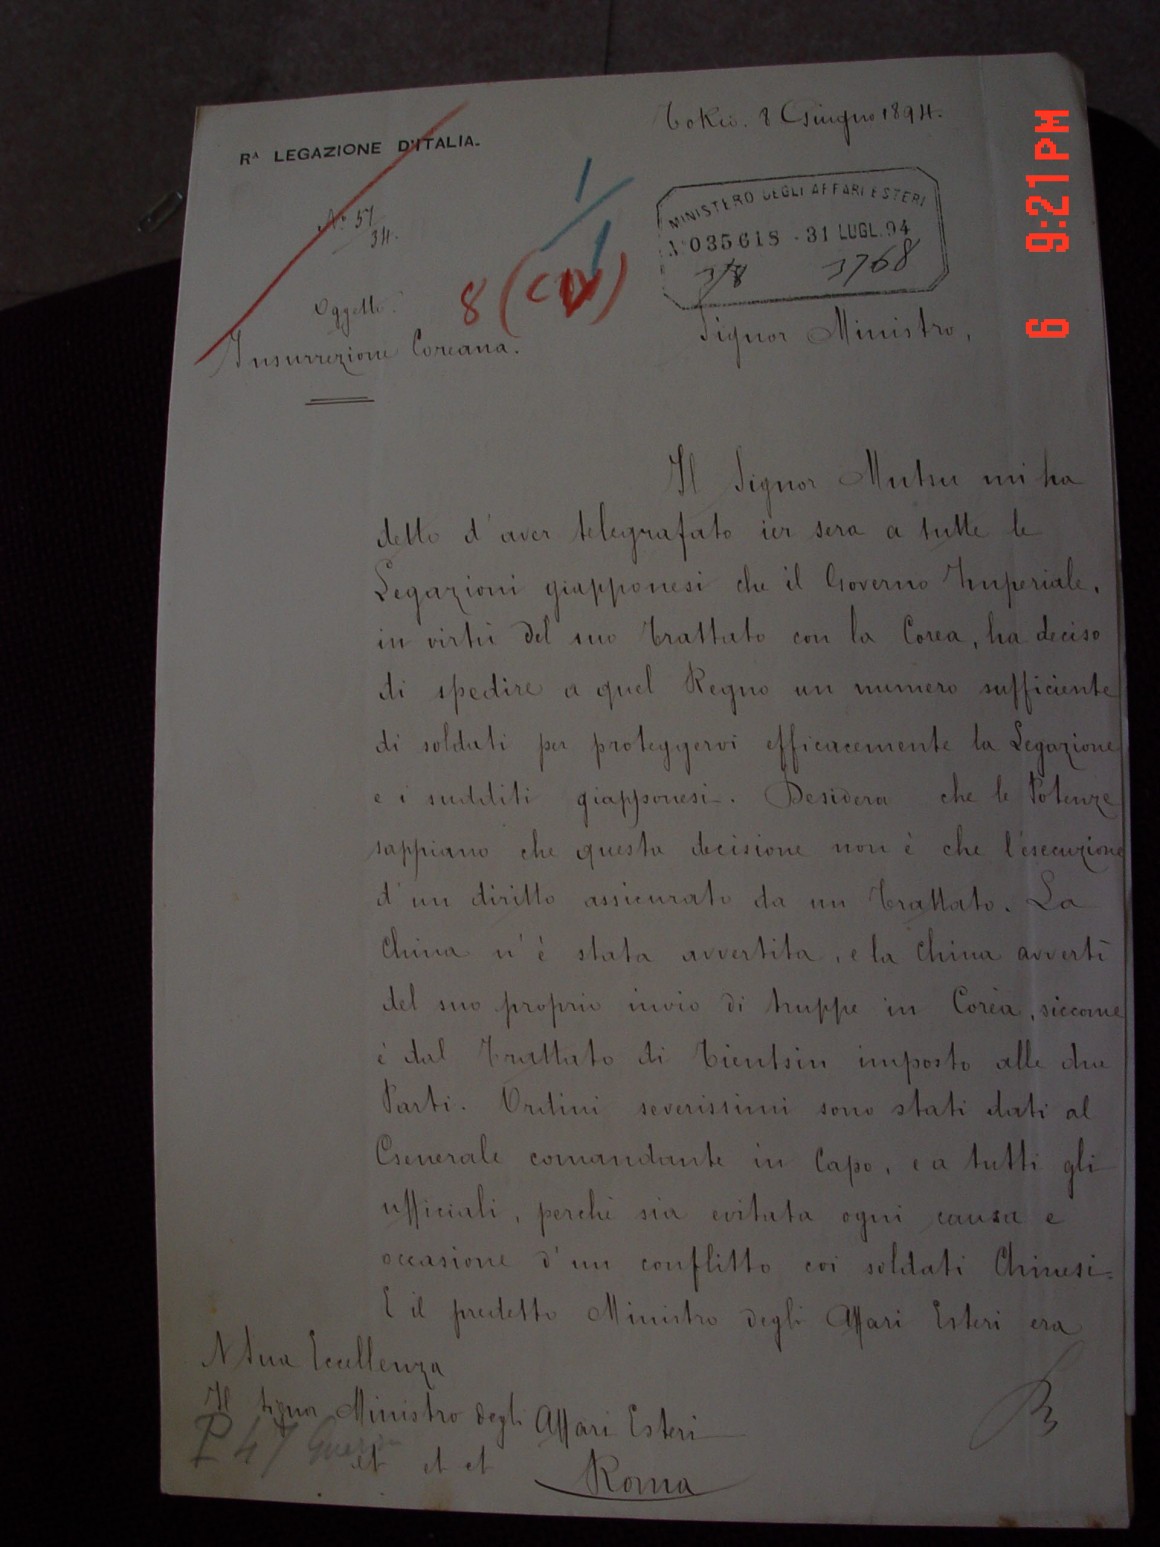 Rᴬ LEGAZIONE D'ITALIA.
Tokio. 8 Giugno 1894.
Nº 57
34.
1
1
8 (CD)
MINISTERO DEGLI AFFARI ESTERI
Nº 035618 - 31 LUGL. 94
3768
Oggetto:
Insurrezione Coreana.
Signor Ministro,
Il Signor Mutsu mi ha
detto d'aver telegrafato ier sera a tutte le
Legazioni giapponesi che il Governo Imperiale,
in virtù del suo Trattato con la Corea, ha deciso
di spedire a quel Regno un numero sufficiente
di soldati per proteggervi efficacemente la Legazione
e i sudditi giapponesi. Desidera che le Potenze
sappiano che questa decisione non è che l'esecuzione
d'un diritto assicurato da un Trattato. La
China n'è stata avvertita, e la China avvertì
del suo proprio invio di truppe in Corea, siccome
è dal Trattato di Tientsin imposto alle due
Parti. Ordini severissimi sono stati dati al
Generale comandante in Capo, e a tutti gli
ufficiali, perchè sia evitata ogni causa e
occasione d'un conflitto coi soldati Chinesi.
E il predetto Ministro degli Affari Esteri era
A Sua Eccellenza
Il Signor Ministro degli Affari Esteri
et et et
Roma
P 47
6 9:21PM